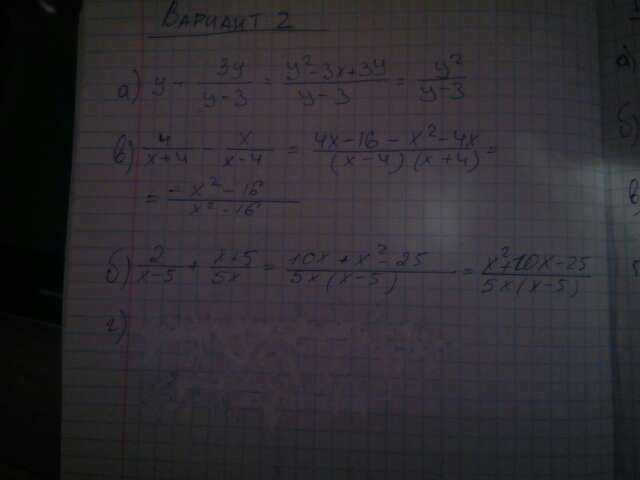 Вариант 2
а) y - 3y/(y-3) = (y²-3x+3y)/(y-3) = y²/(y-3)
в) 4/(x+4) - x/(x-4) = (4x-16-x²-4x)/((x-4)(x+4)) =
= (-x²-16)/(x²-16)
б) 2/(x-5) + (x+5)/5x = (10x+x²-25)/(5x(x-5)) = (x²+10x-25)/(5x(x-5))
г)
а)
б)
в